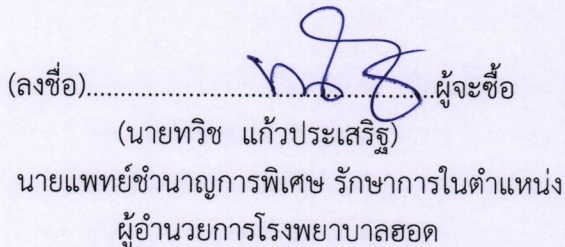 (ลงชื่อ)......................................................ผู้จะซื้อ
(นายทวิช แก้วประเสริฐ)
นายแพทย์ชำนาญการพิเศษ รักษาการในตำแหน่ง
ผู้อำนวยการโรงพยาบาลฮอด